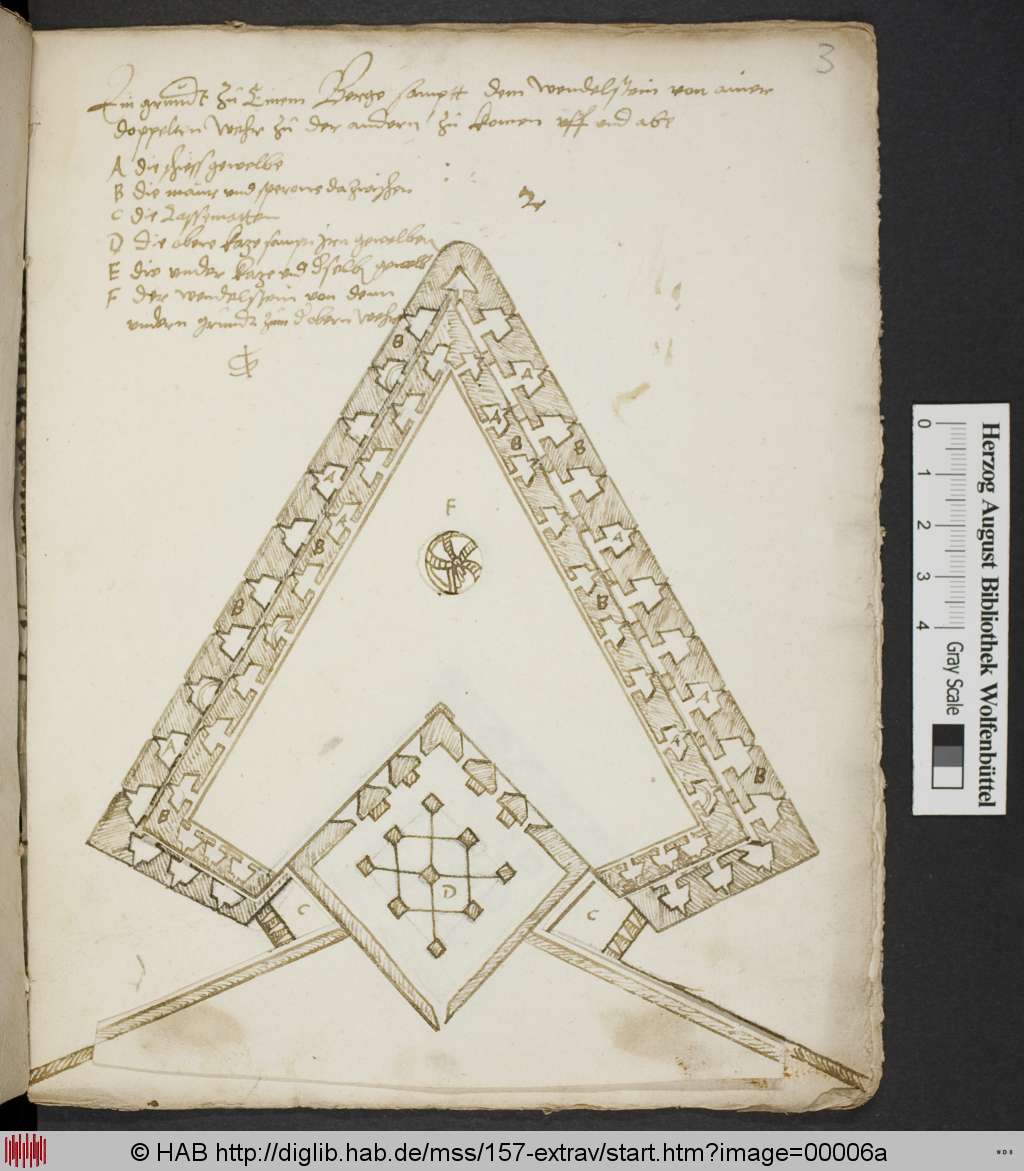 3
Ein grundt zu Einem Berge sampt dem wendelstein von ainer
doppelten wehr zu der andern zu komen uff und abe
A die schiess gewelbe
B die maur und sperone dazwischen
C die Cassematten
D die obere kaze sampt iren gewelben
E die under kaze und gewelb
F der wendelstein von dem
undern grundt zum obern wehr
B
A
B
A
A
B
B
A
B
A
B
F
B
A
A
A
B
B
D
C
C
0 1 2 3 4
Gray Scale
Herzog August Bibliothek Wolfenbüttel
© HAB http://diglib.hab.de/mss/157-extrav/start.htm?image=00006a